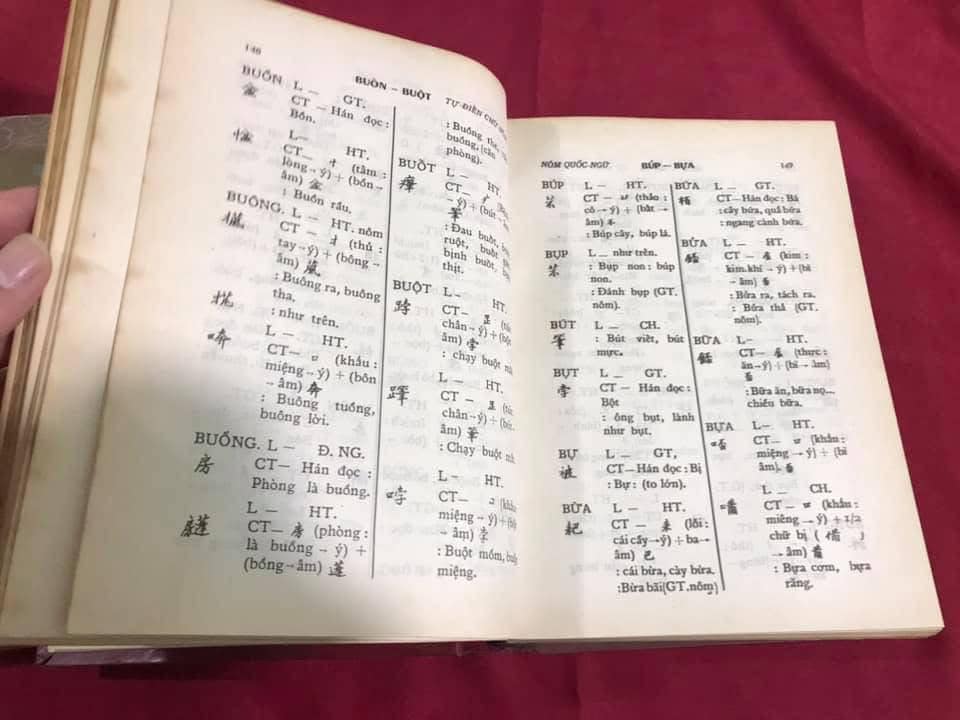 146
BUỒN – BUỘT TỰ-ĐIỂN CHỮ
BUỒN L — GT.
CT — Hán đọc :
Bồn.
L— HT.
CT— 忄 (tâm :
lòng → ý) + (bồn →
âm) 盆
: Buồn rầu.
BUÔNG. L — HT. nôm
CT— 扌 (thủ :
tay→ý) + (bông→
âm)
: Buông ra, buông
tha.
: như trên.
L — HT.
㖹 CT— 口 (khẩu :
miệng → ý) + (bôn
→ âm) 奔
: Buông tuồng,
buông lời.
BUỒNG. L — Đ. NG.
房 CT— Hán đọc :
Phòng là buồng.
L — HT.
CT— 房 (phòng :
là buồng → ý) +
(bồng→âm) 蓬
: Buồng the,
buồng, (căn
phòng).
BUỐT L — HT.
CT—
→ ý) + (bút→
âm) 筆
: Đau buốt,
ruột, buốt
bịnh buốt,
thịt.
BUỘT L — HT.
CT— 足 (túc :
chân→ý) + (bột
âm) 孛
: chạy buột
L — HT.
CT— 足 (túc :
chân→ý) + (bút→
âm) 筆
: Chạy buột
L— HT.
哱 CT— 口 (khẩu
miệng → ý)+(bột
→ âm) 孛
: Buột mồm, buột
miệng.
NÔM QUỐC-NGỮ. BÚP — BỰA 147
BÚP L — HT.
CT — (thảo :
cỏ→ ý) + (bất →
âm) 不
: Búp cây, búp lá.
BỤP L — như trên.
: Bụp non : búp
non.
: Đánh bụp (GT.
nôm).
BÚT L — CH.
筆 : Bút viết, bút
mực.
BỤT L — GT.
孛 CT — Hán đọc :
Bột
: ông bụt, lành
như bụt.
BỰ L — GT,
被 CT— Hán đọc : Bị
: Bự : (to lớn).
BỪA L — HT.
耙 CT — 耒 (lỗi :
cái cầy→ý) + ba→
âm) 巴
: cái bừa, cày bừa.
:Bừa bãi(GT.nôm)
BỨA L — GT.
CT—Hán đọc : Bá
: cây bứa, quả bứa
: ngang cành bứa.
BỬA L — HT.
CT — 金 (kim :
kim.khí → ý)+(bĩ
→ âm) 否
: Bửa ra, tách ra.
: Bửa thả (GT.
nôm).
BỮA L— HT.
CT— 食 (thực :
ăn→ý) + (bĩ→âm)
否
: Bữa ăn, bữa nọ...
chiều bữa.
BỰA L— HT.
CT— 口 (khẩu :
miệng → ý) + (bĩ
âm). 否
L — CH.
CT — 口 (khẩu :
miệng → ý) + 1/2
chữ bị ( 備 )
→ âm)
: Bựa cơm, bựa
răng.